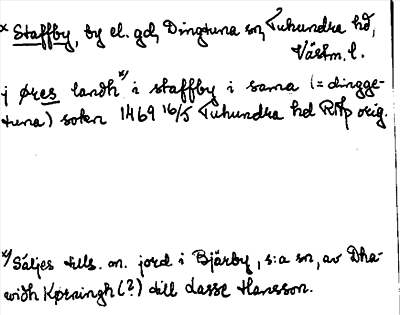 x Staffby, by el. gd, Dingtuna sn, Tuhundra hd,
Västm. l.
j øres landh x) i staffby i sama (= dingge-
tuna) sokn 1469 16/5 Tuhundra hd RAp orig.
x) Säljes tills. m. jord i Bjärby, s:a sn, av Dha-
widh Kørningh (?) till Lasse Hansson.